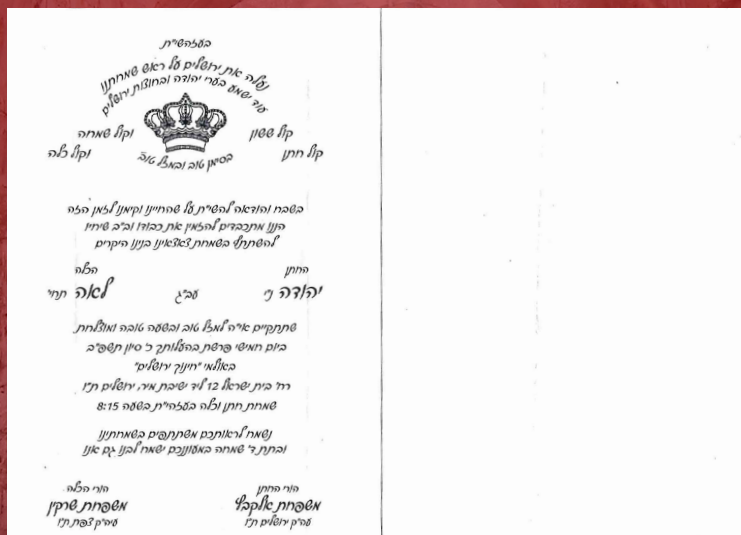 בעזהשי"ת
נעלה את ירושלים על ראש שמחתנו
עוד ישמע בערי יהודה ובחוצות ירושלים
קול ששון וקול שמחה
קול חתן וקול כלה
בסימן טוב ובמזל טוב
בשבח והודאה להשי"ת על שהחיינו וקימנו לזמן הזה
הננו מתכבדים להזמין את כבודו וב"ב שיחיו
להשתתף בשמחת צאצאינו בנינו היקרים
החתן הכלה
יהודה ני עב"ג לאה תחי'
שתתקיים אי"ה למזל טוב ובשעה טובה ומוצלחת
ביום חמישי פרשת בהעלותך כ' סיון תשפ"ב
באולמי "חינוך ירושלים"
רח' בית ישראל 12 ליד ישיבת מיר, ירושלים ת"ו
שמחת חתן וכלה בעזהי"ת בשעה 8:15
נשמח לראותכם משתתפים בשמחתינו
ובתת ד' שמחה במעונכם ישמח לבנו גם אנו
הורי החתן הורי הכלה
משפחת אלקבץ משפחת שרקין
עה"ק ירושלים ת"ו עיה"ק צפת ת"ו